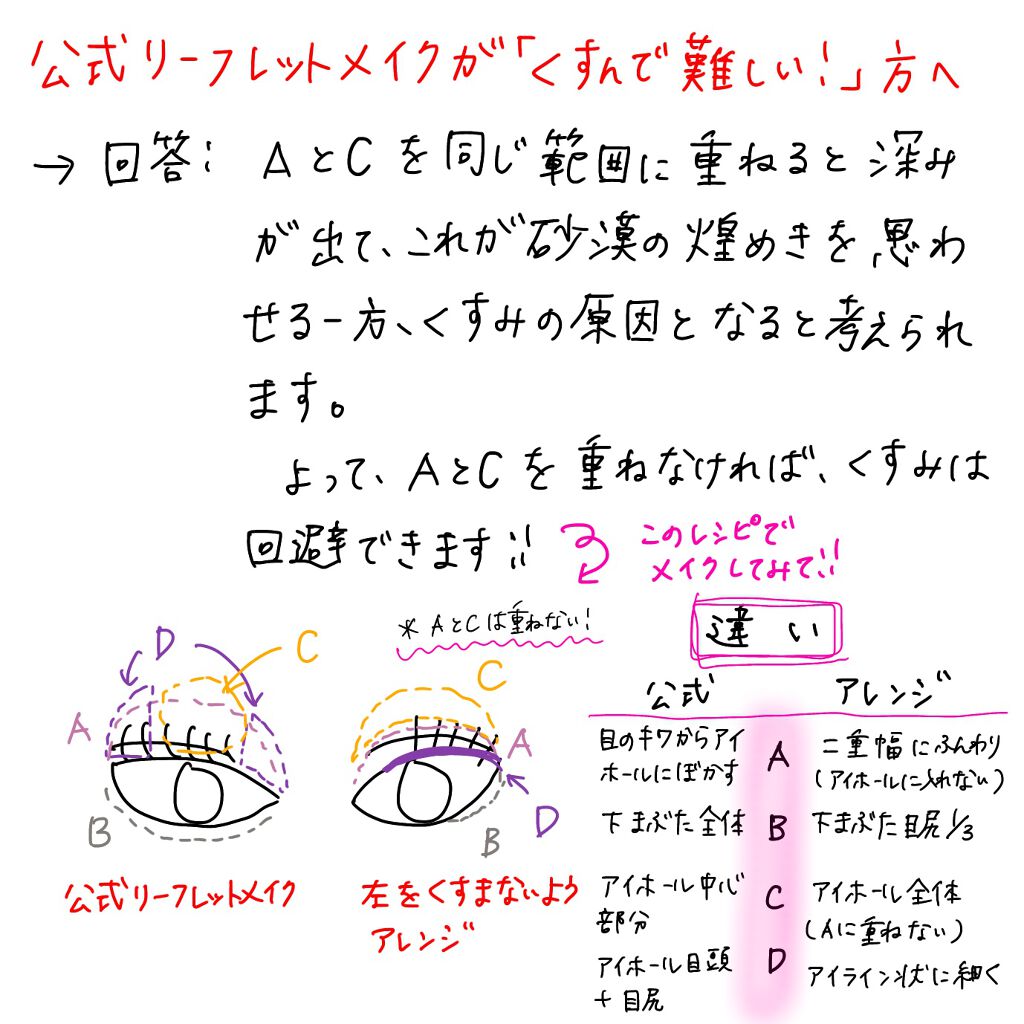 公式リーフレットメイクが「くすんで難しい!」方へ
→ 回答: AとCを同じ範囲に重ねると深み
が出て、これが砂漠の煌めきを思わ
せる一方、くすみの原因となると考えられ
ます。
よって、AとCを重ねなければ、くすみは
回避できます!!
このレシピで
メイクしてみて!!
※AとCは重ねない!
D
C
A
B
公式リーフレットメイク
C
A
D
B
左をくすまないよう
アレンジ
違い
公式 アレンジ
目のキワからアイ
ホールにぼかす
A
二重幅にふんわり
(アイホールに入れない)
下まぶた全体 B 下まぶた目尻1/3
アイホール中心
部分
C
アイホール全体
(Aに重ねない)
アイホール目頭
+目尻
D
アイライン状に細く